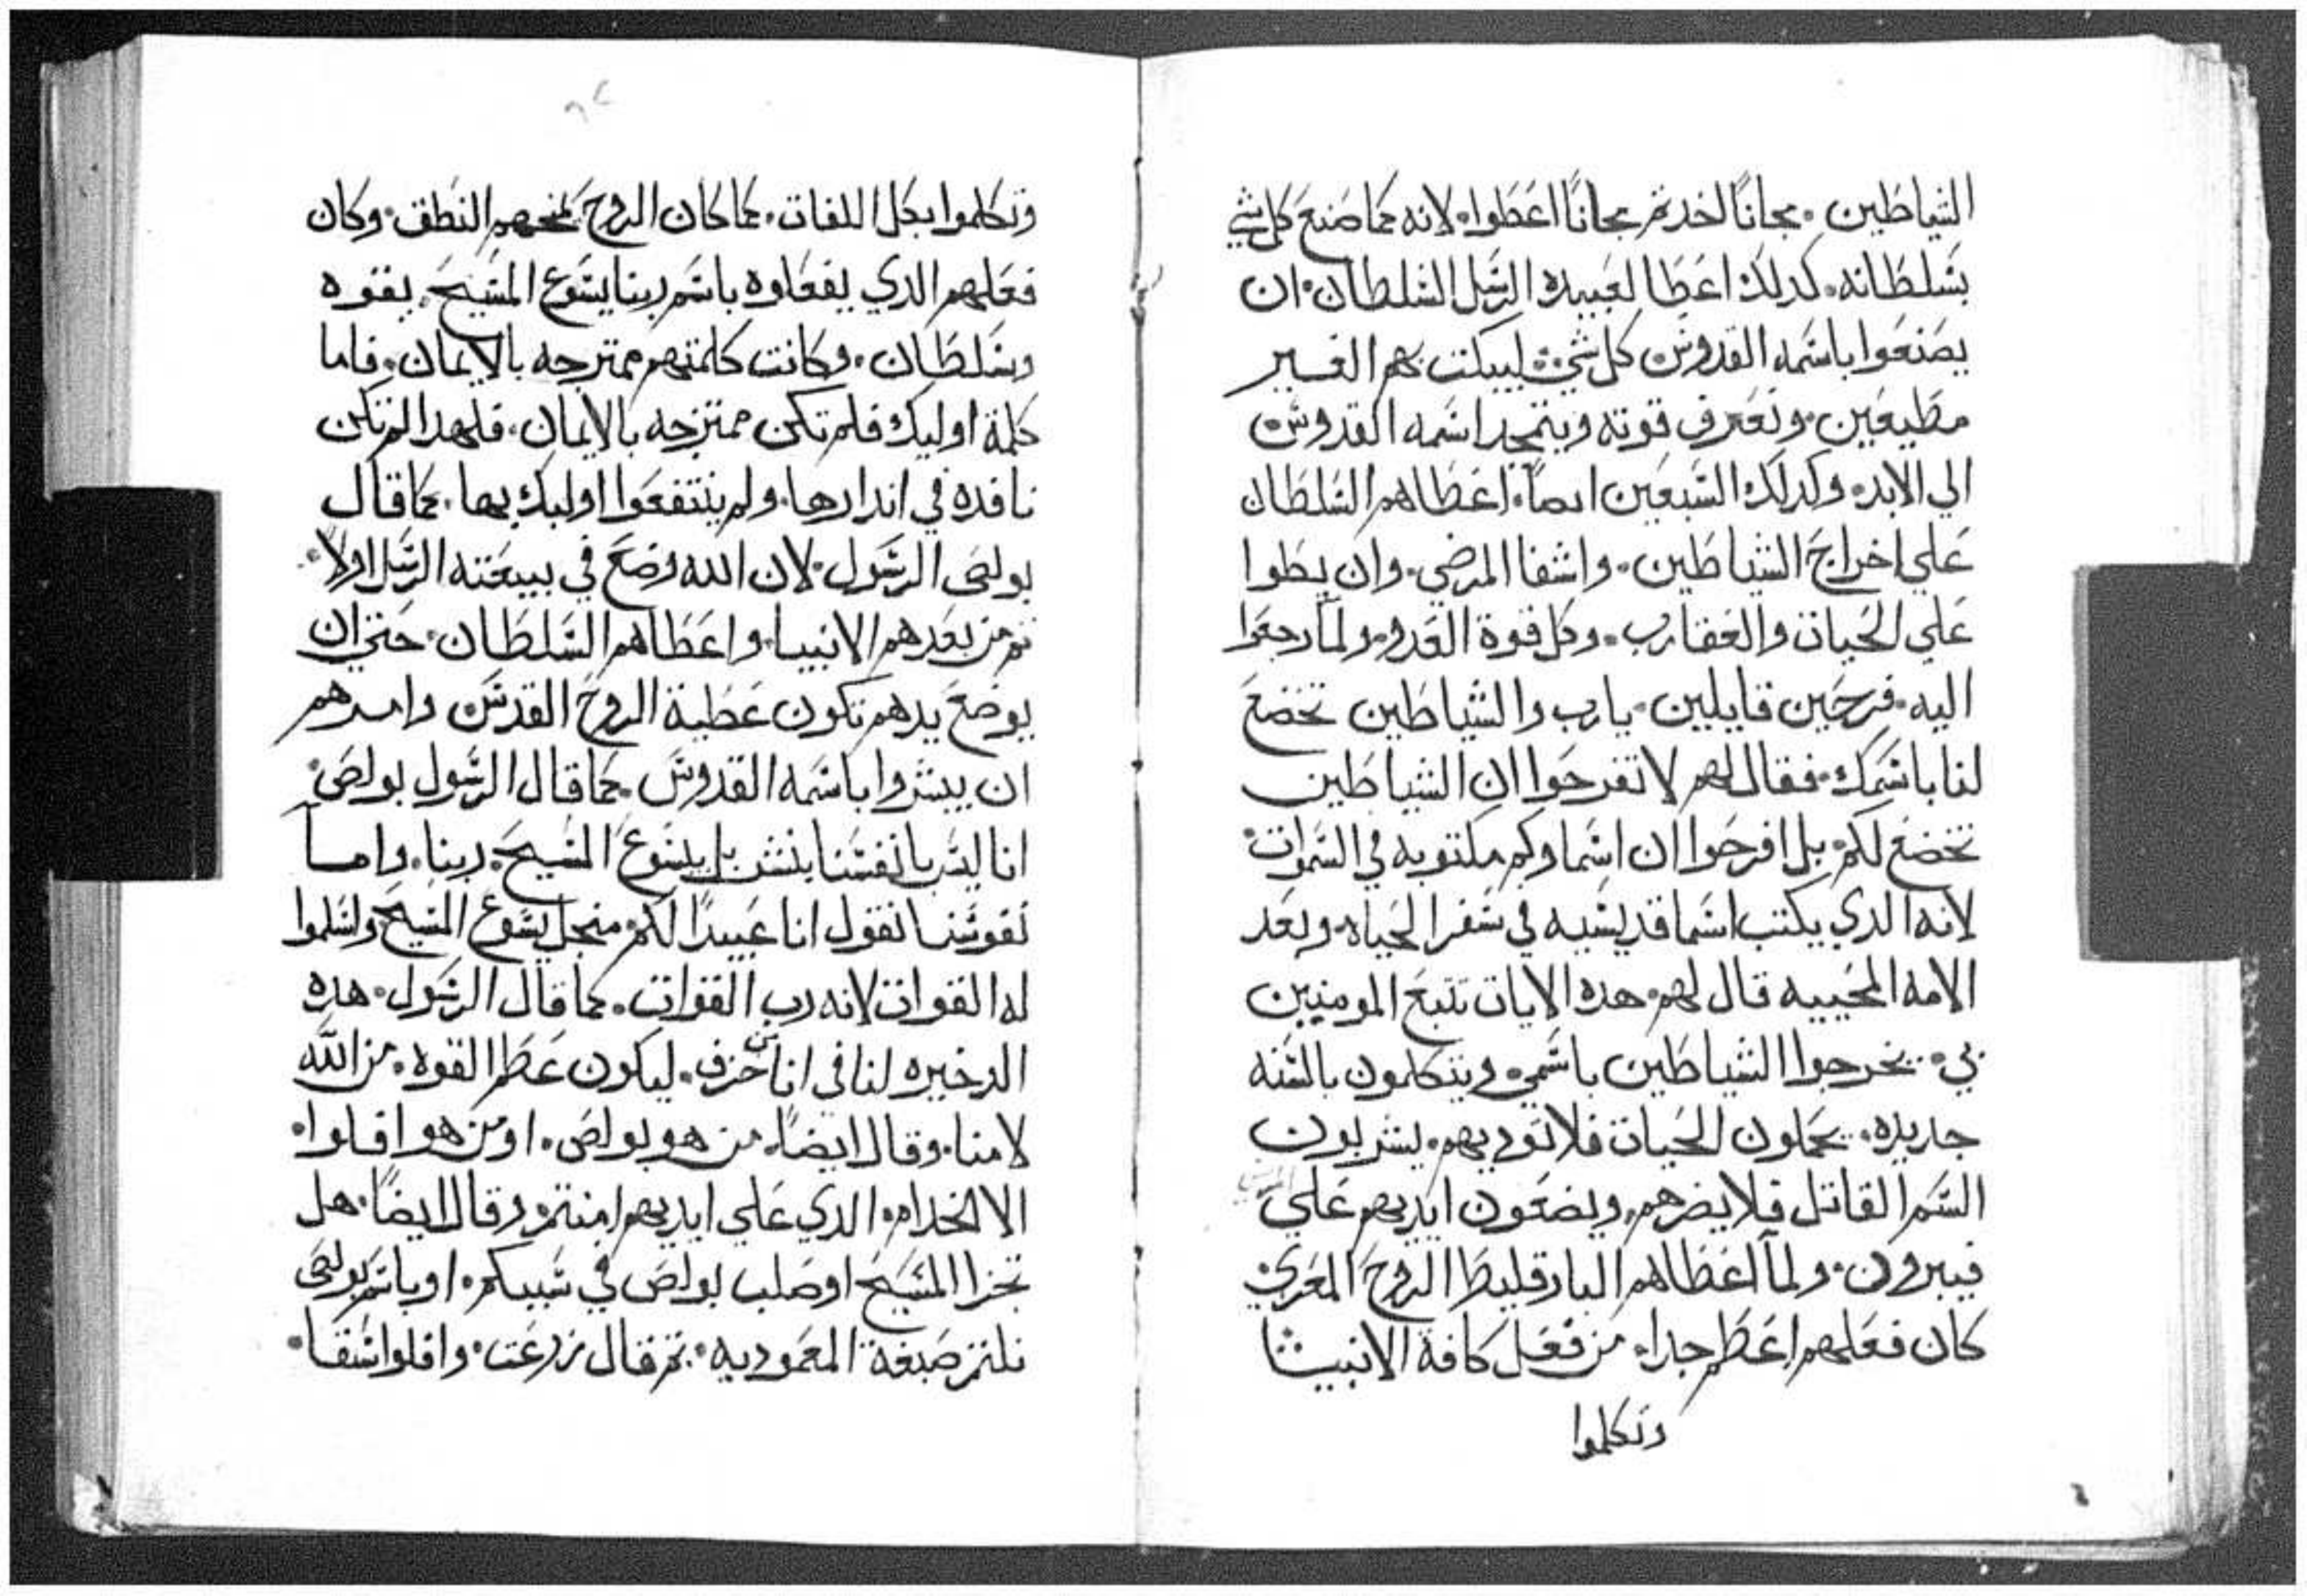 الشياطين. مجاناً اخدتم مجاناً اعطوا. لانه كما صنع كل شي
بسلطانه. كدلك اعطا لعبيده الرسل السلطان. ان
يصنعوا باسمه القدوس كل شي. ليبكت بهم الغير
مطيعين. وتعرف قوته ويتمجد اسمه القدوس
الي الابد. وكدلك السبعين ايضاً. اعطاهم السلطان
علي اخراج الشياطين. واشفا المرضي. وان يطوا
علي الحيات والعقارب. وكل قوة العدو. ولما رجعوا
اليه. فرحين قايلين. يارب والشياطين تخضع
لنا باسمك. فقال لهم لا تفرحوا ان الشياطين
تخضع لكم. بل افرحوا ان اسماوكم مكتوبه في السموات.
لانه الدي يكتب اسما قديسيه في سفر الحياه. وبعد
الامه المحييه قال لهم. هده الايات تتبع المومنين
بي. يخرجوا الشياطين باسمي. ويتكلمون بالسنه
جديده. يحملون الحيات فلا توديهم. يشربون
السم القاتل فلا يضرهم. ويضعون ايديهم علي المرضي
فيبرون. ولما اعطاهم البارقليط الروح المعزي
كان فعلهم اعظم جدا. من فعل كافة الانبيا
وتكلموا
وتكلموا بكل اللغات. كما كان الروح يمنحهم النطق. وكان
فعلهم الدي يفعلوه باسم ربنا يسوع المسيح. بقوه
وسلطان. وكانت كلمتهم ممتزجه بالايمان. فاما
كلمة اوليك فلم تكن ممتزجه بالايمان. فلهدا لم تكن
نافده في اندارها. ولم ينتفعوا اوليك بها. كما قال
بولص الرسول. لان الله وضع في بيعته الرسل اولاً.
ثم من بعدهم الانبيا. واعطاهم السلطان. حتي ان
بوضع يدهم تكون عطية الروح القدس وامرهم
ان يبشروا باسمه القدوس. كما قال الرسول بولص.
انا ليس بانفسنا نبشر بل بيسوع المسيح. ربنا. واما
نفوسنا نقول انا عبيداً لكم. منجل يسوع المسيح واسلموا
له القوات لانه رب القوات. كما قال الرسول. هده
الدخيره لنا في انا من خزف. ليكون عظم القوه. من الله
لا منا. وقال ايضاً. من هو بولص. او من هو افلوا.
الا الخدام. الدي علي ايديهم امنتم. وقال ايضاً. هل
تجزا المسيح او صلب بولص في سبيكم. او باسم بولص
نلتم صبغة المعموديه. ثم قال زرعت. وافلوا سقا.